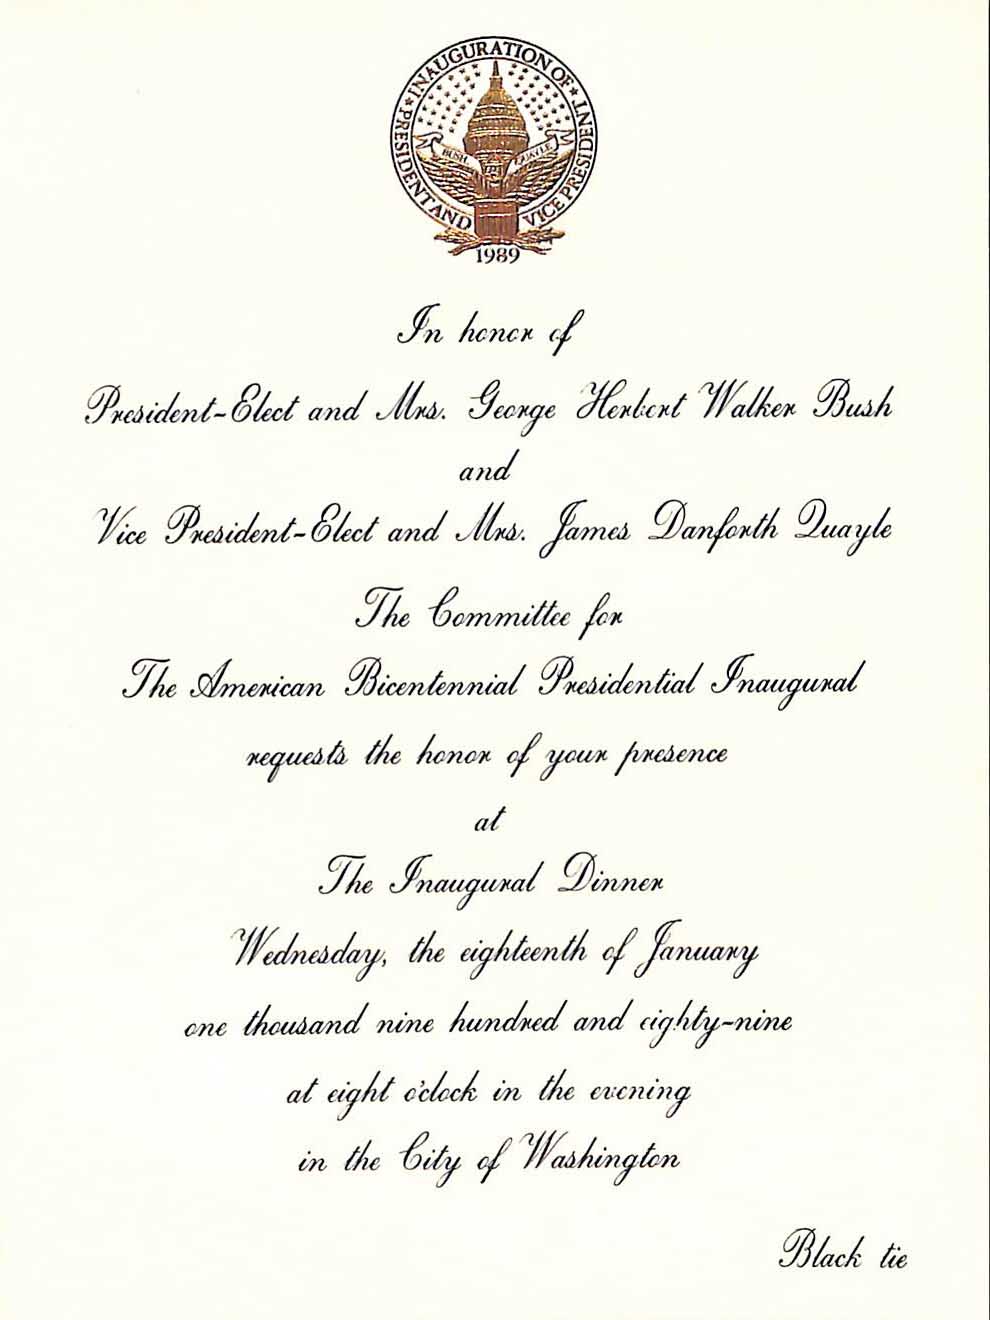 INAUGURATION OF
PRESIDENT AND VICE PRESIDENT
BUSH QUAYLE
1989
In honor of
President-Elect and Mrs. George Herbert Walker Bush
and
Vice President-Elect and Mrs. James Danforth Quayle
The Committee for
The American Bicentennial Presidential Inaugural
requests the honor of your presence
at
The Inaugural Dinner
Wednesday, the eighteenth of January
one thousand nine hundred and eighty-nine
at eight o'clock in the evening
in the City of Washington
Black tie